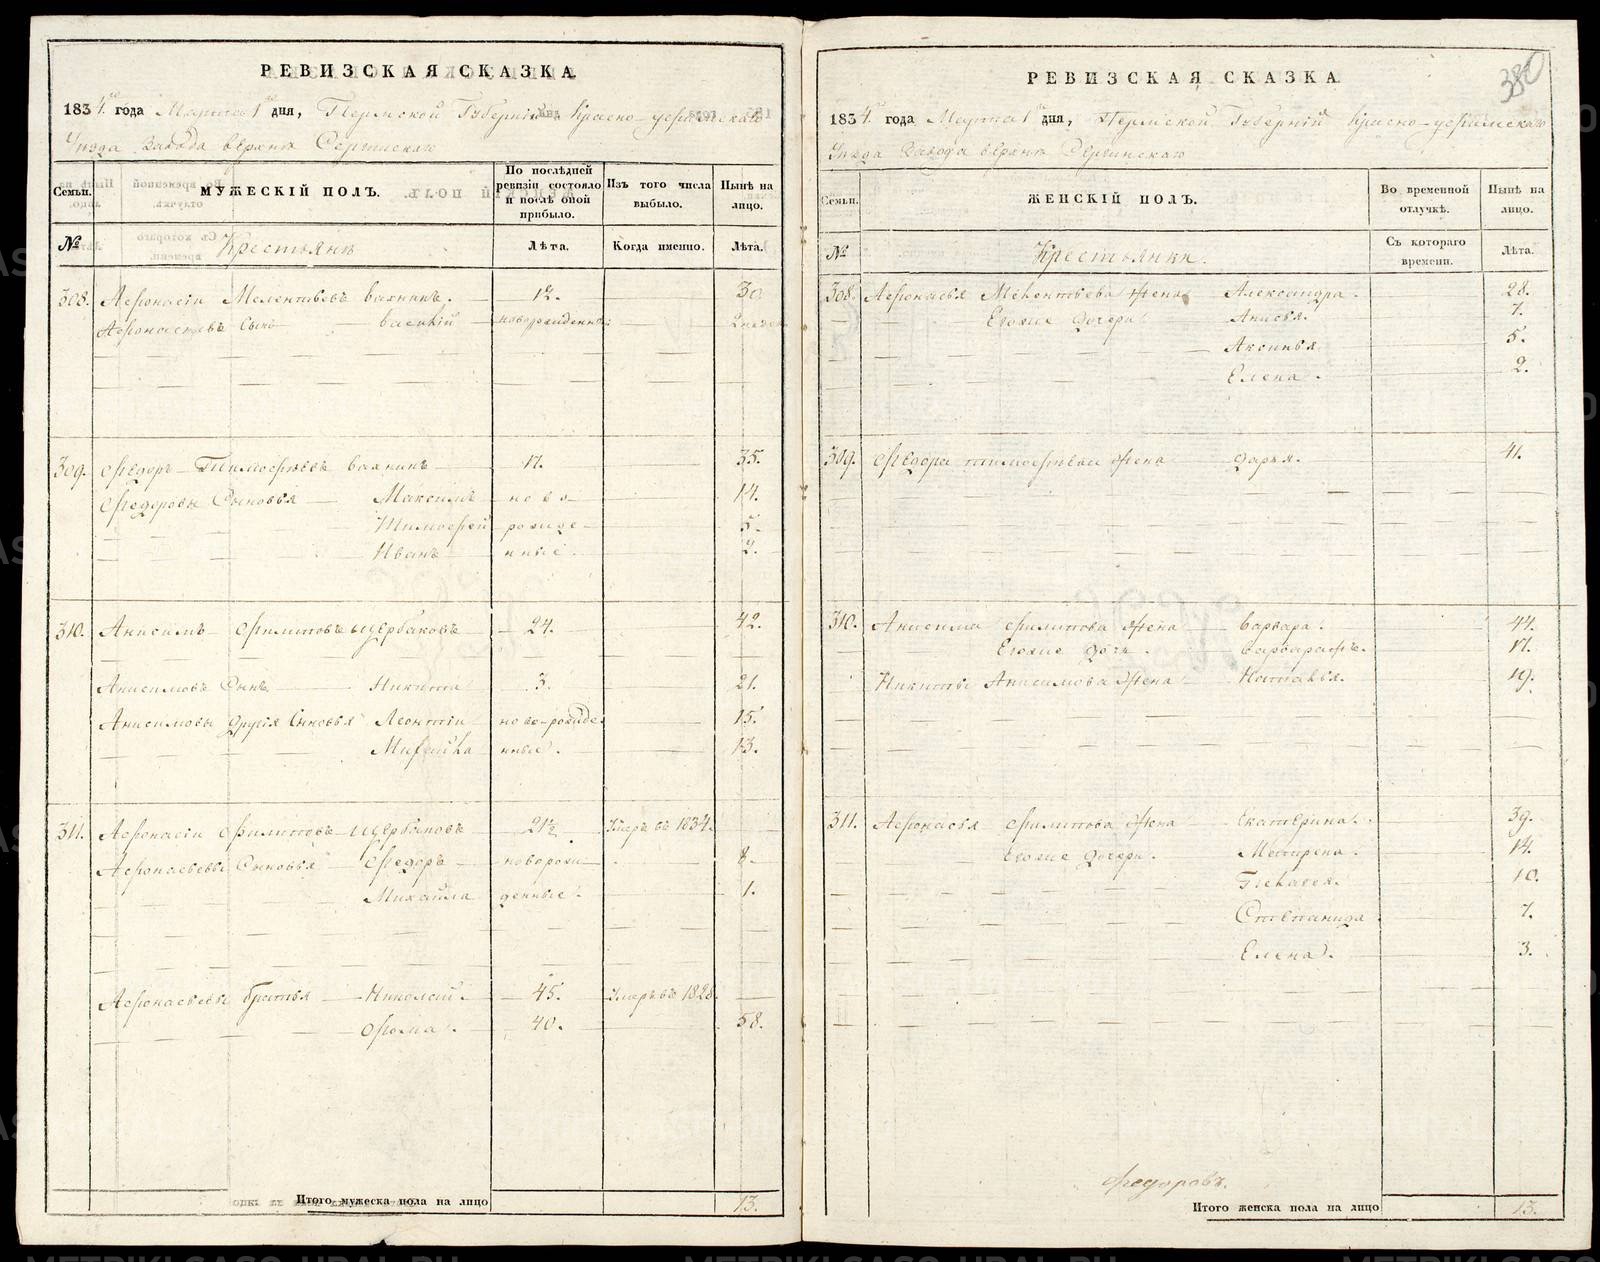 РЕВИЗСКАЯ СКАЗКА
1834 года Марта 1 дня, Пермской Губернии Красно-уфимскаго
Уезда Завода верхня Сергинскаго
Семьи. МУЖЕСКІЙ ПОЛЪ. По послѣдней ревизіи состояло и послѣ оной прибыло. Изъ того числа выбыло. Нынѣ на лицо.
№ Крестьянѣ Лѣта. Когда именно. Лѣта.
308. Афонасіи Мелентьевъ вахнинъ. 12. 30
Афонасьевъ Сынъ василій новорожденной
309. Федоръ Тимофѣевъ вахнинъ 17. 35.
Федоровы Сыновья Максимъ ново 14.
Тимофей рожде 5.
Иванъ нные. 2.
310. Анисимъ Филиповъ щербаковъ 24. 42.
Анисимовъ Сынъ Никита 3. 21.
Анисимовы другія Сыновья Леонтіи ново-рожде 15.
нные. 13.
311. Афонасіи Филиповъ щербаковъ 21½ Умеръ въ 1834.
Афонасьевы Сыновья Федоръ новорож 8.
Михайла денные. 1.
Афонасьевы братья Николай. 45. Умеръ въ 1828.
Фома. 40. 58.
Итого мужеска пола на лицо 13.
380
РЕВИЗСКАЯ СКАЗКА
1834 года Марта 1 дня, Пермской Губерніи Красно-уфимскаго
Уезда Завода верхня Сергинскаго
Семьи. ЖЕНСКІЙ ПОЛЪ. Во временной отлучкѣ. Нынѣ на лицо.
№ Крестьянки. Съ котораго времени. Лѣта.
308. Афонасья Мелентьева Жена Александра. 28.
Еговые дочери Анисья. 7.
Аксинья 5.
Елена. 2.
309. Федора тимофѣева Жена дарья. 41.
310. Анисима Филипова Жена варвара. 44.
Еговые дочь. 17.
Никиты Анисимова Жена Наталья. 19.
311. Афонасья Филипова Жена Екатерина. 39.
Еговые дочери. Матрена. 14.
10.
Степанида 7.
Елена. 3.
Федоровъ.
Итого женска пола на лицо 13.